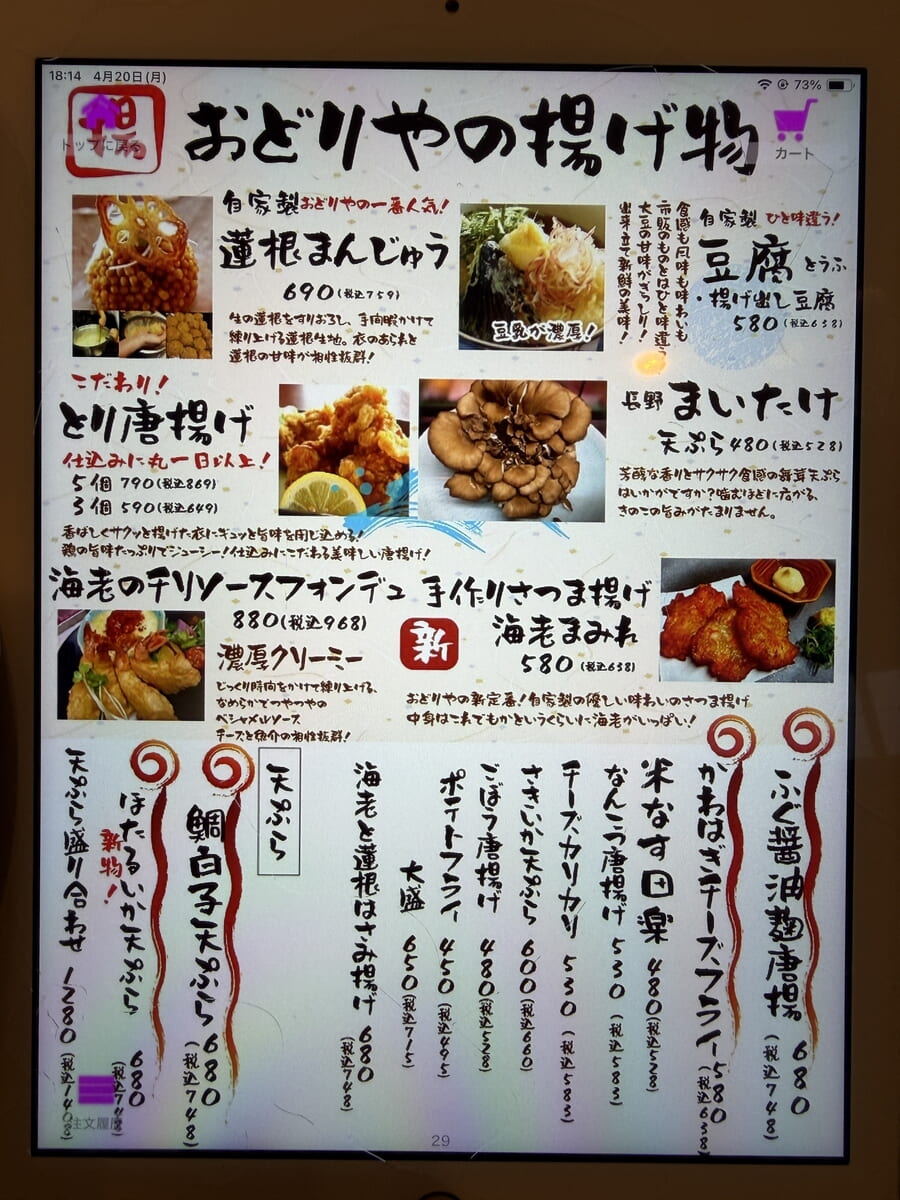 18:14 4月20日(月)
73%
トップに戻る
おどりやの揚げ物
カート
自家製おどりやの一番人気!
蓮根まんじゅう
690(税込759)
生の蓮根をすりおろし、手間暇かけて
練り上げる蓮根生地。衣のあられと
蓮根の甘味が相性抜群!
豆乳が濃厚!
自家製 ひと味違う!
豆腐 とうふ
・揚げ出し豆腐
580 (税込638)
食感も風味も味わいも
市販のものとはひと味違う
大豆の甘味がぎっしり!
出来立て新鮮の美味!
こだわり!
とり唐揚げ
仕込みに丸一日以上!
5個 790(税込869)
3個 590(税込649)
香ばしくサクッと揚げた衣にギュッと旨味を閉じ込める!
鶏の旨味たっぷりでジューシー!仕込みにこだわる美味しい唐揚げ!
長野 まいたけ
天ぷら480(税込528)
芳醇な香りとサクサク食感の舞茸天ぷら
はいかがですか?噛むほどに広がる、
きのこの旨みがたまりません。
海老のチリソースフォンデュ
880(税込968)
濃厚クリーミー
じっくり時間をかけて練り上げる、
なめらかでつやつやの
ベシャメルソース
チーズと魚介の相性抜群!
手作りさつま揚げ
海老まみれ
580 (税込638)
おどりやの新定番!自家製の優しい味わいのさつま揚げ
中身はこれでもかというくらいに海老がいっぱい!
ふぐ醤油麹唐揚 680(税込748)
かわはぎチーズフライ 580(税込638)
米なす田楽 480(税込528)
なんこつ唐揚げ 530(税込583)
チーズカリカリ 530(税込583)
さきいか天ぷら 600(税込660)
ごぼう唐揚げ 480(税込528)
ポテトフライ 450(税込495)
大盛 650(税込715)
海老と蓮根はさみ揚げ 680(税込748)
天ぷら
鯛白子天ぷら 680(税込748)
ほたるいか天ぷら 680(税込748)
新物!
天ぷら盛り合わせ 1280(税込1408)
注文履歴
29